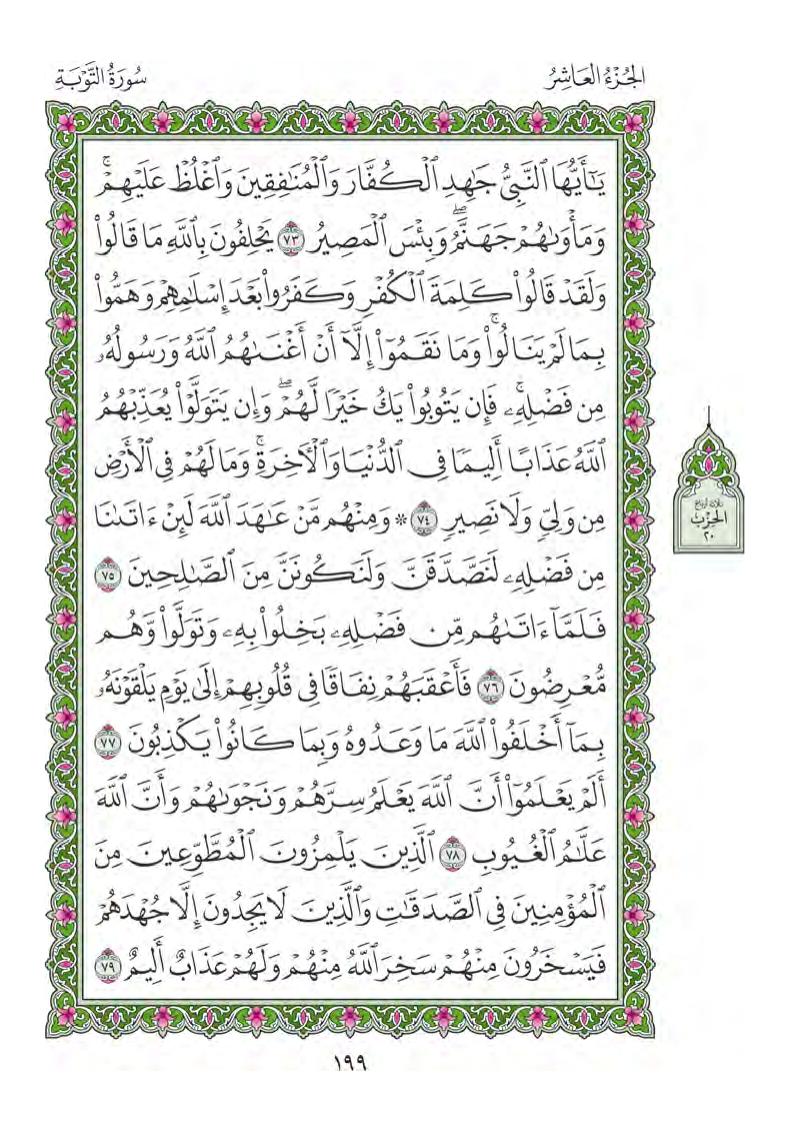 الجُزْءُ العَاشِرُ
سُورَةُ التَّوْبَةِ
يَٰٓأَيُّهَا ٱلنَّبِيُّ جَٰهِدِ ٱلْكُفَّارَ وَٱلْمُنَٰفِقِينَ وَٱغْلُظْ عَلَيْهِمْۚ
وَمَأْوَىٰهُمْ جَهَنَّمُۖ وَبِئْسَ ٱلْمَصِيرُ ٧٣ يَحْلِفُونَ بِٱللَّهِ مَا قَالُوا۟
وَلَقَدْ قَالُوا۟ كَلِمَةَ ٱلْكُفْرِ وَكَفَرُوا۟ بَعْدَ إِسْلَٰمِهِمْ وَهَمُّوا۟
بِمَا لَمْ يَنَالُوا۟ۚ وَمَا نَقَمُوٓا۟ إِلَّآ أَنْ أَغْنَىٰهُمُ ٱللَّهُ وَرَسُولُهُۥ
مِن فَضْلِهِۦۚ فَإِن يَتُوبُوا۟ يَكُ خَيْرًا لَّهُمْۖ وَإِن يَتَوَلَّوْا۟ يُعَذِّبْهُمُ
ٱللَّهُ عَذَابًا أَلِيمًا فِى ٱلدُّنْيَا وَٱلْءَاخِرَةِۚ وَمَا لَهُمْ فِى ٱلْأَرْضِ
مِن وَلِىٍّ وَلَا نَصِيرٍ ٧٤ ۞ وَمِنْهُم مَّنْ عَٰهَدَ ٱللَّهَ لَئِنْ ءَاتَىٰنَا
مِن فَضْلِهِۦ لَنَصَّدَّقَنَّ وَلَنَكُونَنَّ مِنَ ٱلصَّٰلِحِينَ ٧٥
فَلَمَّآ ءَاتَىٰهُم مِّن فَضْلِهِۦ بَخِلُوا۟ بِهِۦ وَتَوَلَّوا۟ وَّهُم
مُّعْرِضُونَ ٧٦ فَأَعْقَبَهُمْ نِفَاقًا فِى قُلُوبِهِمْ إِلَىٰ يَوْمِ يَلْقَوْنَهُۥ
بِمَآ أَخْلَفُوا۟ ٱللَّهَ مَا وَعَدُوهُ وَبِمَا كَانُوا۟ يَكْذِبُونَ ٧٧
أَلَمْ يَعْلَمُوٓا۟ أَنَّ ٱللَّهَ يَعْلَمُ سِرَّهُمْ وَنَجْوَىٰهُمْ وَأَنَّ ٱللَّهَ
عَلَّٰمُ ٱلْغُيُوبِ ٧٨ ٱلَّذِينَ يَلْمِزُونَ ٱلْمُطَّوِّعِينَ مِنَ
ٱلْمُؤْمِنِينَ فِى ٱلصَّدَقَٰتِ وَٱلَّذِينَ لَا يَجِدُونَ إِلَّا جُهْدَهُمْ
فَيَسْخَرُونَ مِنْهُمْ سَخِرَ ٱللَّهُ مِنْهُمْ وَلَهُمْ عَذَابٌ أَلِيمٌ ٧٩
ثلاثة أرباع
الحِزْب
٢٠
١٩٩